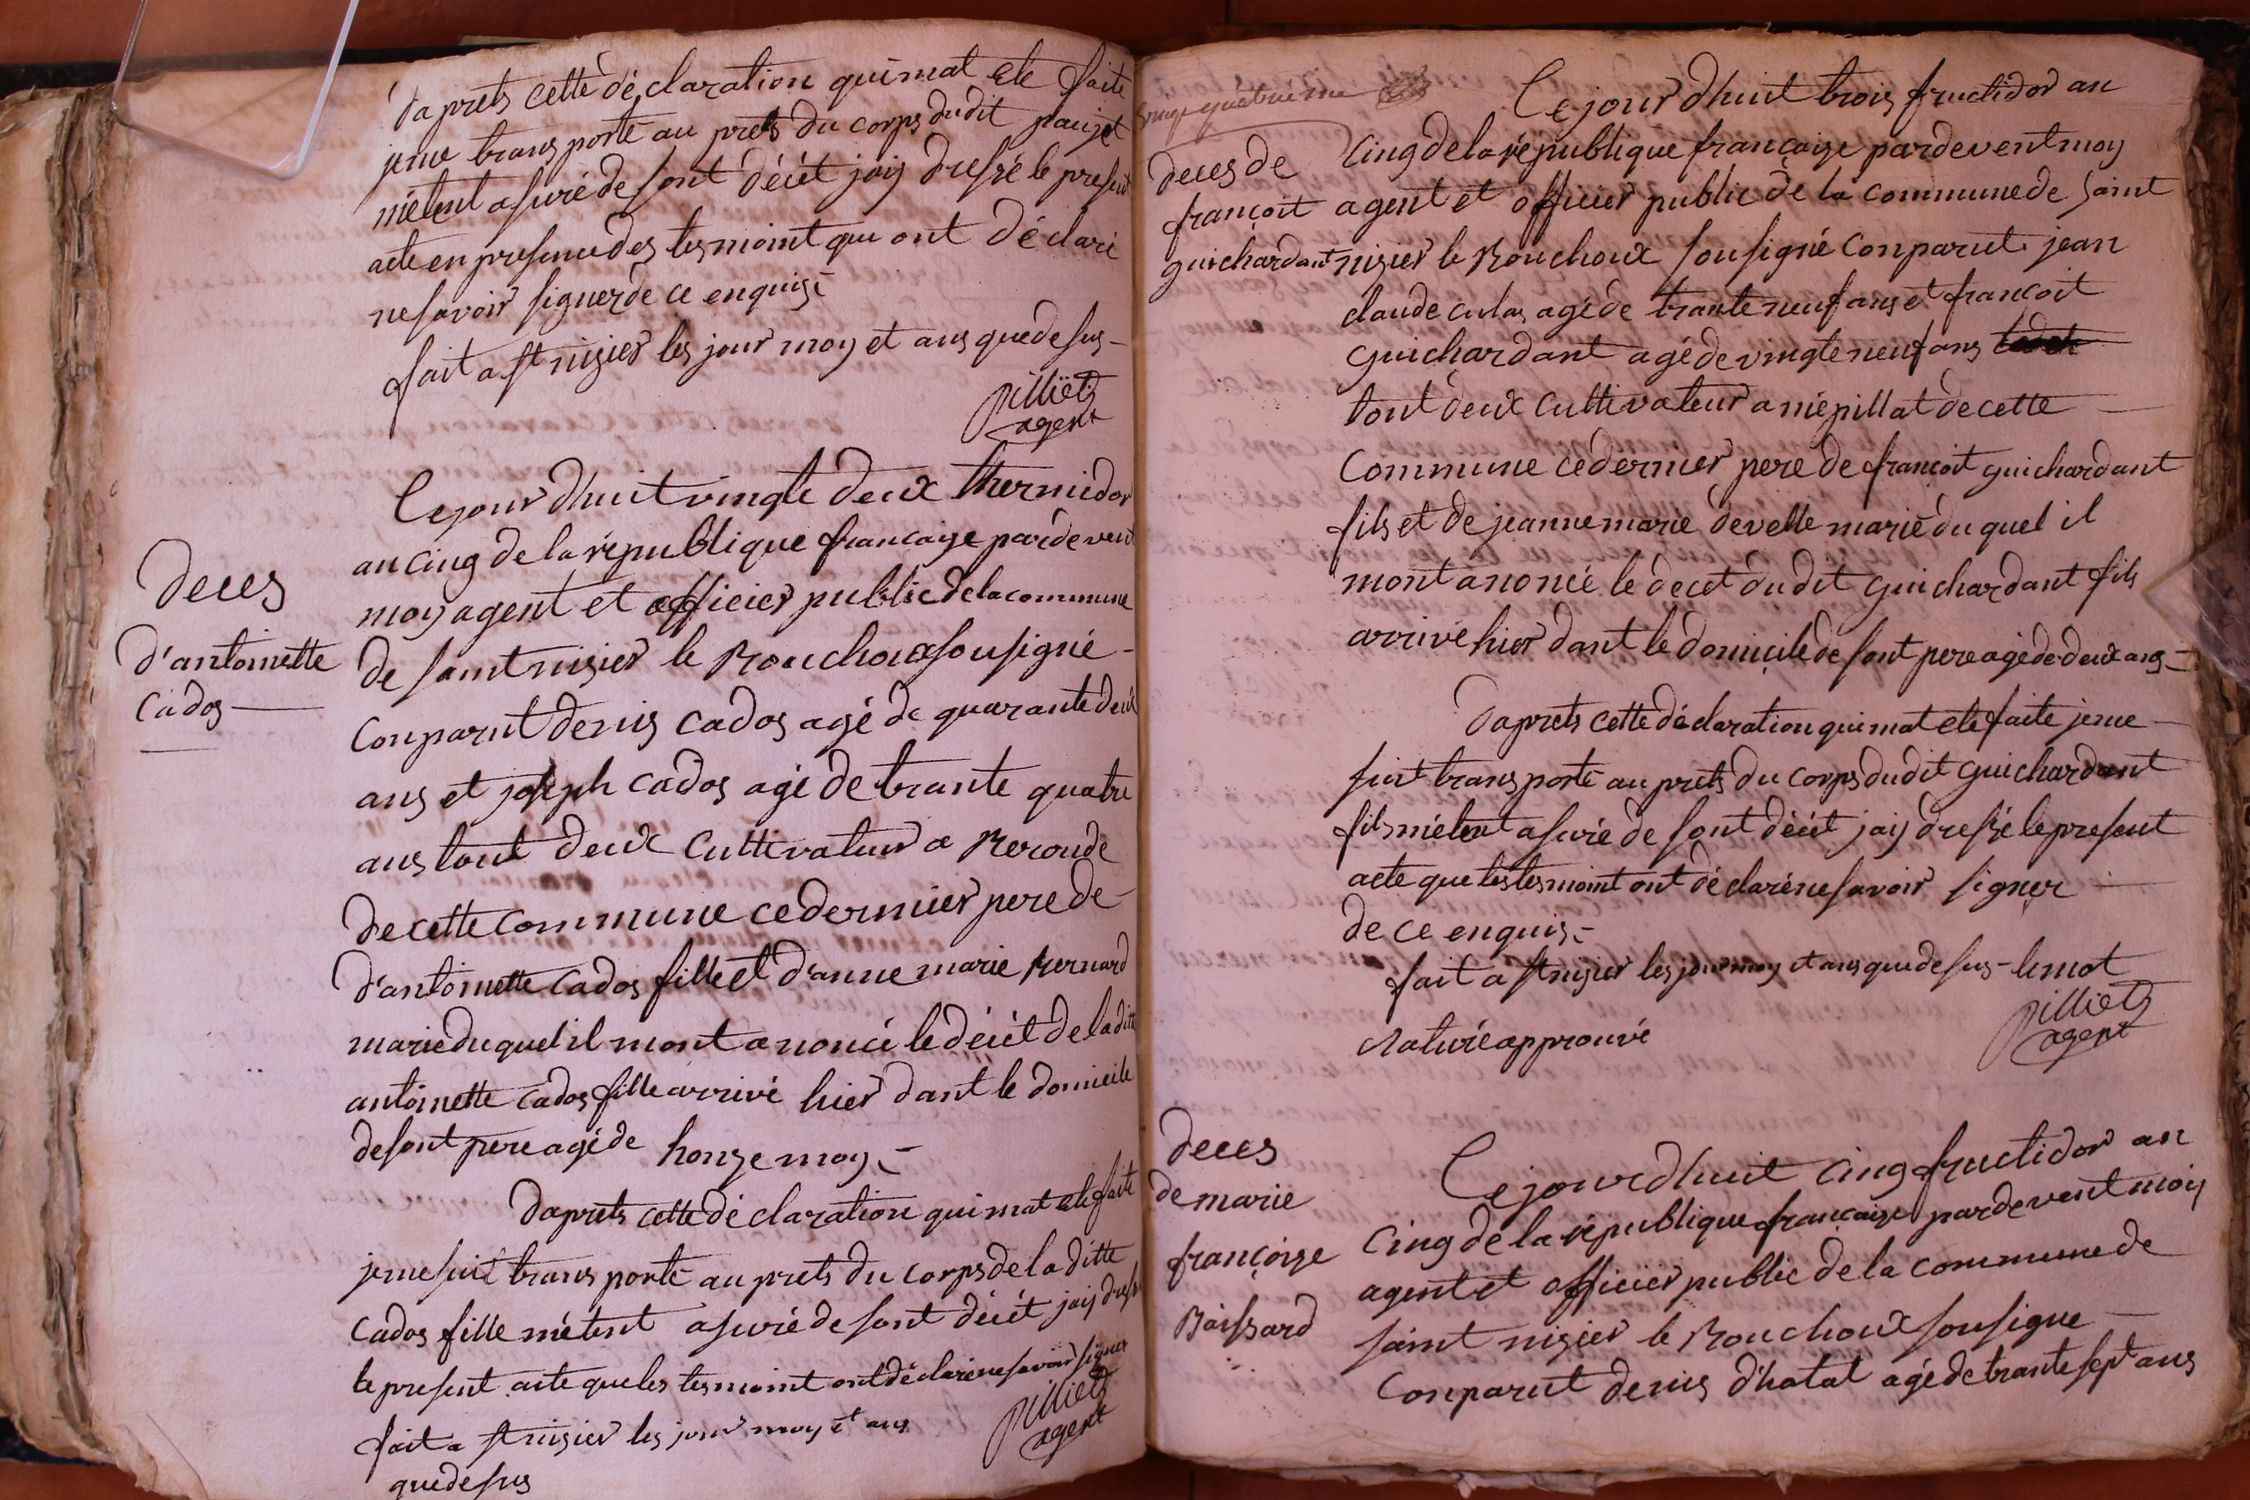 daprets cette déclaration quimat ete faite
jeme transporté au prets du corps dudit paujet
mètent asuré de sont décèt jaij dressé le present
acte en presence des tesmoint qui ont déclaré
ne savoir signer de ce enquis
fait a st nisier les jour moy et ans que desus
pilliets
agent
deces
d'antoinette
cados
Cejour dhuit vingte deux thermidor
an cinq de la république francaise pardevent
moy agent et officier public de la commune
de saint nisier le Bouchoux sousigné
Conparut denis cados agé de quarante deux
ans et joseph cados agé de trante quatre
ans tout deux cultivateur a Reronde
de cette commune ce dernier pere de
d'antoinette cados fille et d'anne marie Bernard
marié duquel il mont anoncé le décèt de la ditte
antoinette cados fille arrivé hier dant le domicile
de sont pere agé de honze moy
daprets cette déclaration quimat ete faite
jeme suit transporté au prets du corps de la ditte
Cados fille mètent asuré de sont décèt jaij dressé
le present acte que les tesmoint ont déclaré ne savoir signer
fait a st nisier les jour moy et ans
que desus
pilliets
agent
deces de
françoit
guichardant
Cejour dhuit trois fructidor an
Cinq de la république française pardevent moy
agent et officier public de la commune de saint
nisier le Bouchoux sousigné Conparut jean
claude culas agé de trante neuf ans et françoit
guichardant agé de vingte neuf ans
tout deux cultivateur a niépillat de cette
Commune ce dernier pere de françoit guichardant
fils et de jeanne marie develle marié du quel il
mont anoncé le decet dudit guichardant fils
arrivé hier dant le domicile de sont pere agé de deux ans
daprets cette déclaration quimat ete faite jeme
suit transporté au prets du corps dudit guichardant
fils mètent asuré de sont décèt jaij dressé le present
acte que les tesmoint ont déclaré ne savoir signer
de ce enquis
fait a st nisier les jour moy et ans que desus le mot
raturé approuvé
pilliets
agent
deces
de marie
françoise
Boissard
Cejourdhuit cinq fructidor an
Cinq de la république française pardevent moy
agent et officier public de la commune de
saint nisier le Bouchoux sousigne
Conparut denis d'hatat agé de trante sept ans